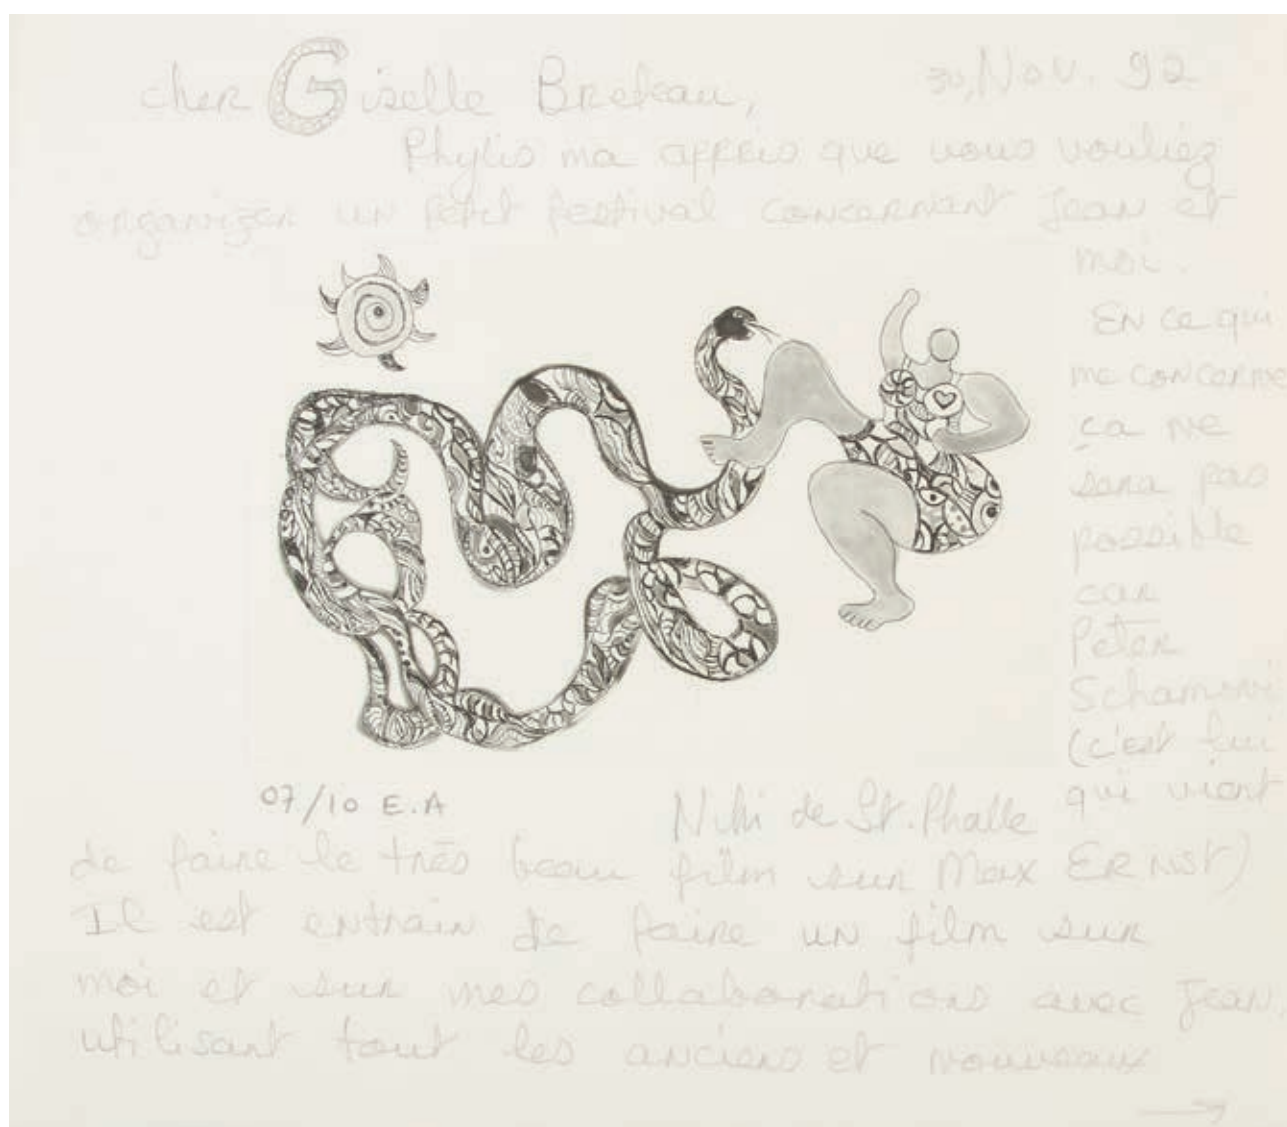 cher Giselle Breteau,
30, Nov. 92
Phylis ma appris que vous vouliez
organizer un petit festival concernant Jean et
moi.
En ce qui
me concerne
ça ne
sera pas
possible
car
Peter
Schamoni
(c'est lui
qui vient
07/10 E.A
Niki de St. Phalle
de faire le très beau film sur Max ERNST)
Il est entrain de faire un film sur
moi et sur mes collaborations avec Jean
utilisant tout les anciens et nouveaux